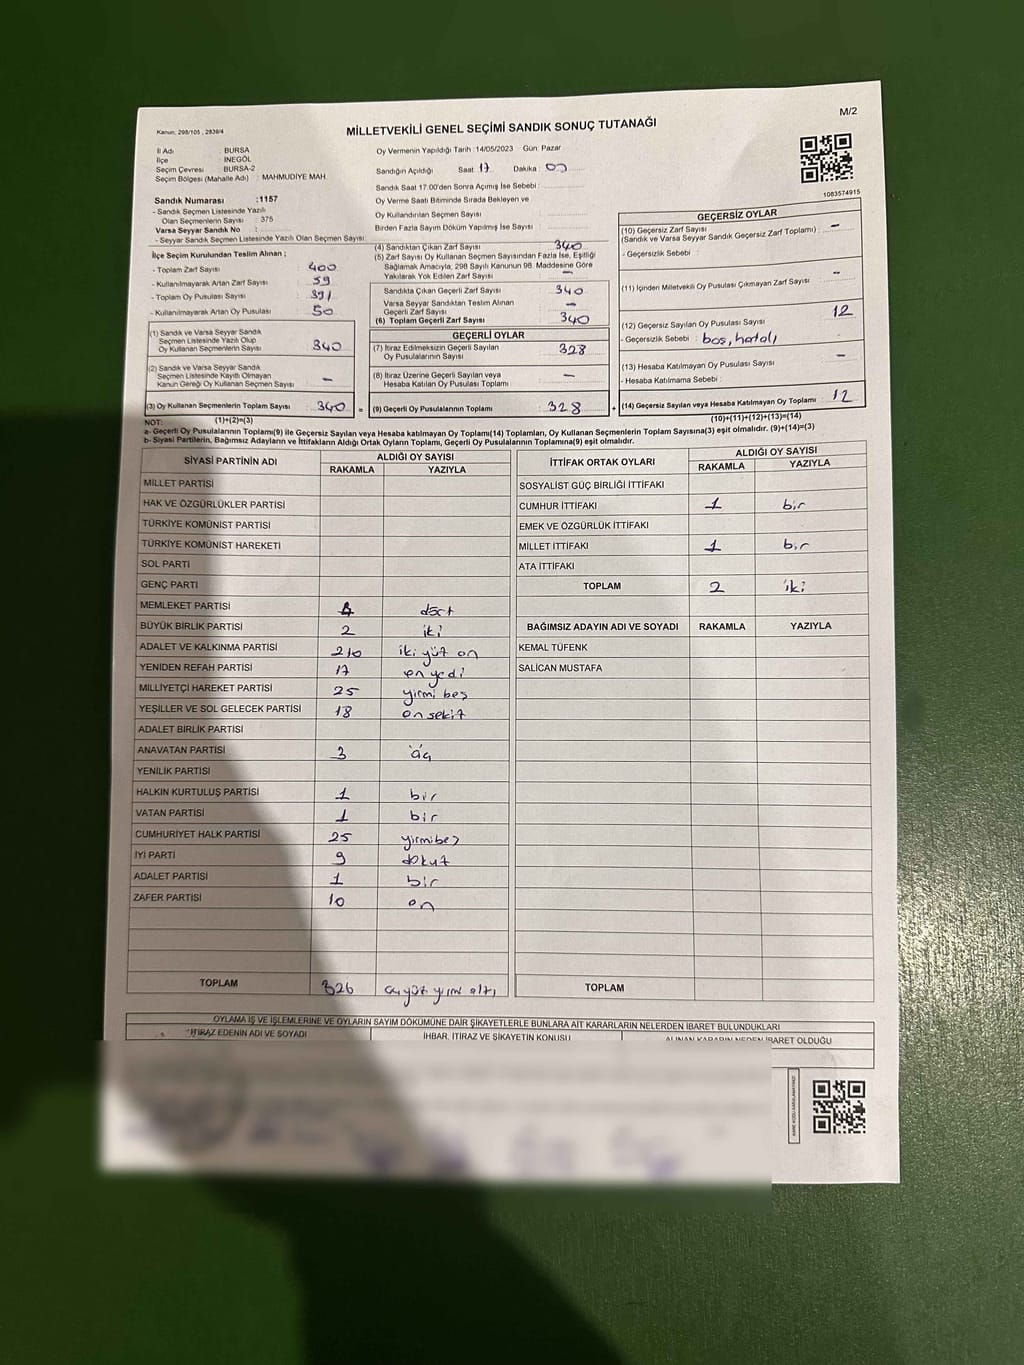 M/2
Kanun: 298/105 , 2839/4
MİLLETVEKİLİ GENEL SEÇİMİ SANDIK SONUÇ TUTANAĞI
İl Adı : BURSA
İlçe : İNEGÖL
Seçim Çevresi : BURSA-2
Seçim Bölgesi (Mahalle Adı) : MAHMUDİYE MAH.
Oy Vermenin Yapıldığı Tarih :14/05/2023 Gün: Pazar
Sandığın Açıldığı Saat 17 Dakika :
Sandık Saat 17.00'den Sonra Açımış İse Sebebi :
Oy Verme Saati Bitiminde Sırada Bekleyen ve
Oy Kullandırılan Seçmen Sayısı
Birden Fazla Sayım Döküm Yapılmış İse Sayısı
1083574915
Sandık Numarası :1157
- Sandık Seçmen Listesinde Yazılı
Olan Seçmenlerin Sayısı : 375
Varsa Seyyar Sandık No :
- Seyyar Sandık Seçmen Listesinde Yazılı Olan Seçmen Sayısı:
İlçe Seçim Kurulundan Teslim Alınan ;
- Toplam Zarf Sayısı : 400
- Kullanılmayarak Artan Zarf Sayısı : 59
- Toplam Oy Pusulası Sayısı : 391
- Kullanılmayarak Artan Oy Pusulası : 50
(1) Sandık ve Varsa Seyyar Sandık
Seçmen Listesinde Yazılı Olup
Oy Kullanan Seçmenlerin Sayısı : 340
(2) Sandık ve Varsa Seyyar Sandık
Seçmen Listesinde Kayıtlı Olmayan
Kanun Gereği Oy Kullanan Seçmen Sayısı : -
(3) Oy Kullanan Seçmenlerin Toplam Sayısı : 340 =
(4) Sandıktan Çıkan Zarf Sayısı : 340
(5) Zarf Sayısı Oy Kullanan Seçmen Sayısından Fazla İse, Eşitliği
Sağlamak Amacıyla, 298 Sayılı Kanunun 98. Maddesine Göre
Yakılarak Yok Edilen Zarf Sayısı : -
Sandıkta Çıkan Geçerli Zarf Sayısı : 340
Varsa Seyyar Sandıktan Teslim Alınan
Geçerli Zarf Sayısı : -
(6) Toplam Geçerli Zarf Sayısı : 340
GEÇERLİ OYLAR
(7) İtiraz Edilmeksizin Geçerli Sayılan
Oy Pusulalarının Sayısı : 328
(8) İtiraz Üzerine Geçerli Sayılan veya
Hesaba Katılan Oy Pusulası Toplamı : -
(9) Geçerli Oy Pusulalarının Toplamı : 328 +
GEÇERSİZ OYLAR
(10) Geçersiz Zarf Sayısı : -
(Sandık ve Varsa Seyyar Sandık Geçersiz Zarf Toplamı)
- Geçersizlik Sebebi :
(11) İçinden Milletvekili Oy Pusulası Çıkmayan Zarf Sayısı : -
(12) Geçersiz Sayılan Oy Pusulası Sayısı : 12
- Geçersizlik Sebebi : boş, hatalı
(13) Hesaba Katılmayan Oy Pusulası Sayısı : -
- Hesaba Katılmama Sebebi :
(14) Geçersiz Sayılan veya Hesaba Katılmayan Oy Toplamı : 12
NOT: (1)+(2)=(3)
(10)+(11)+(12)+(13)=(14)
a- Geçerli Oy Pusulalarının Toplamı(9) ile Geçersiz Sayılan veya Hesaba katılmayan Oy Toplamı(14) Toplamları, Oy Kullanan Seçmenlerin Toplam Sayısına(3) eşit olmalıdır. (9)+(14)=(3)
b- Siyasi Partilerin, Bağımsız Adayların ve İttifakların Aldığı Ortak Oyların Toplamı, Geçerli Oy Pusulalarının Toplamına(9) eşit olmalıdır.
SİYASİ PARTİNİN ADI ALDIĞI OY SAYISI
RAKAMLA YAZIYLA
MİLLET PARTİSİ
HAK VE ÖZGÜRLÜKLER PARTİSİ
TÜRKİYE KOMÜNİST PARTİSİ
TÜRKİYE KOMÜNİST HAREKETİ
SOL PARTİ
GENÇ PARTİ
MEMLEKET PARTİSİ 4 dört
BÜYÜK BİRLİK PARTİSİ 2 iki
ADALET VE KALKINMA PARTİSİ 210 iki yüz on
YENİDEN REFAH PARTİSİ 17 on yedi
MİLLİYETÇİ HAREKET PARTİSİ 25 yirmi beş
YEŞİLLER VE SOL GELECEK PARTİSİ 18 on sekiz
ADALET BİRLİK PARTİSİ
ANAVATAN PARTİSİ 3 üç
YENİLİK PARTİSİ
HALKIN KURTULUŞ PARTİSİ 1 bir
VATAN PARTİSİ 1 bir
CUMHURİYET HALK PARTİSİ 25 yirmibeş
İYİ PARTİ 9 dokuz
ADALET PARTİSİ 1 bir
ZAFER PARTİSİ 10 on
TOPLAM 326 üçyüz yirmi altı
İTTİFAK ORTAK OYLARI ALDIĞI OY SAYISI
RAKAMLA YAZIYLA
SOSYALİST GÜÇ BİRLİĞİ İTTİFAKI
CUMHUR İTTİFAKI 1 bir
EMEK VE ÖZGÜRLÜK İTTİFAKI
MİLLET İTTİFAKI 1 bir
ATA İTTİFAKI
TOPLAM 2 iki
BAĞIMSIZ ADAYIN ADI VE SOYADI RAKAMLA YAZIYLA
KEMAL TÜFENK
SALİCAN MUSTAFA
TOPLAM
OYLAMA İŞ VE İŞLEMLERİNE VE OYLARIN SAYIM DÖKÜMÜNE DAİR ŞİKAYETLERLE BUNLARA AİT KARARLARIN NELERDEN İBARET BULUNDUKLARI
İTİRAZ EDENİN ADI VE SOYADI İHBAR, İTİRAZ VE ŞİKAYETİN KONUSU ALINAN KARARIN NEDEN İBARET OLDUĞU